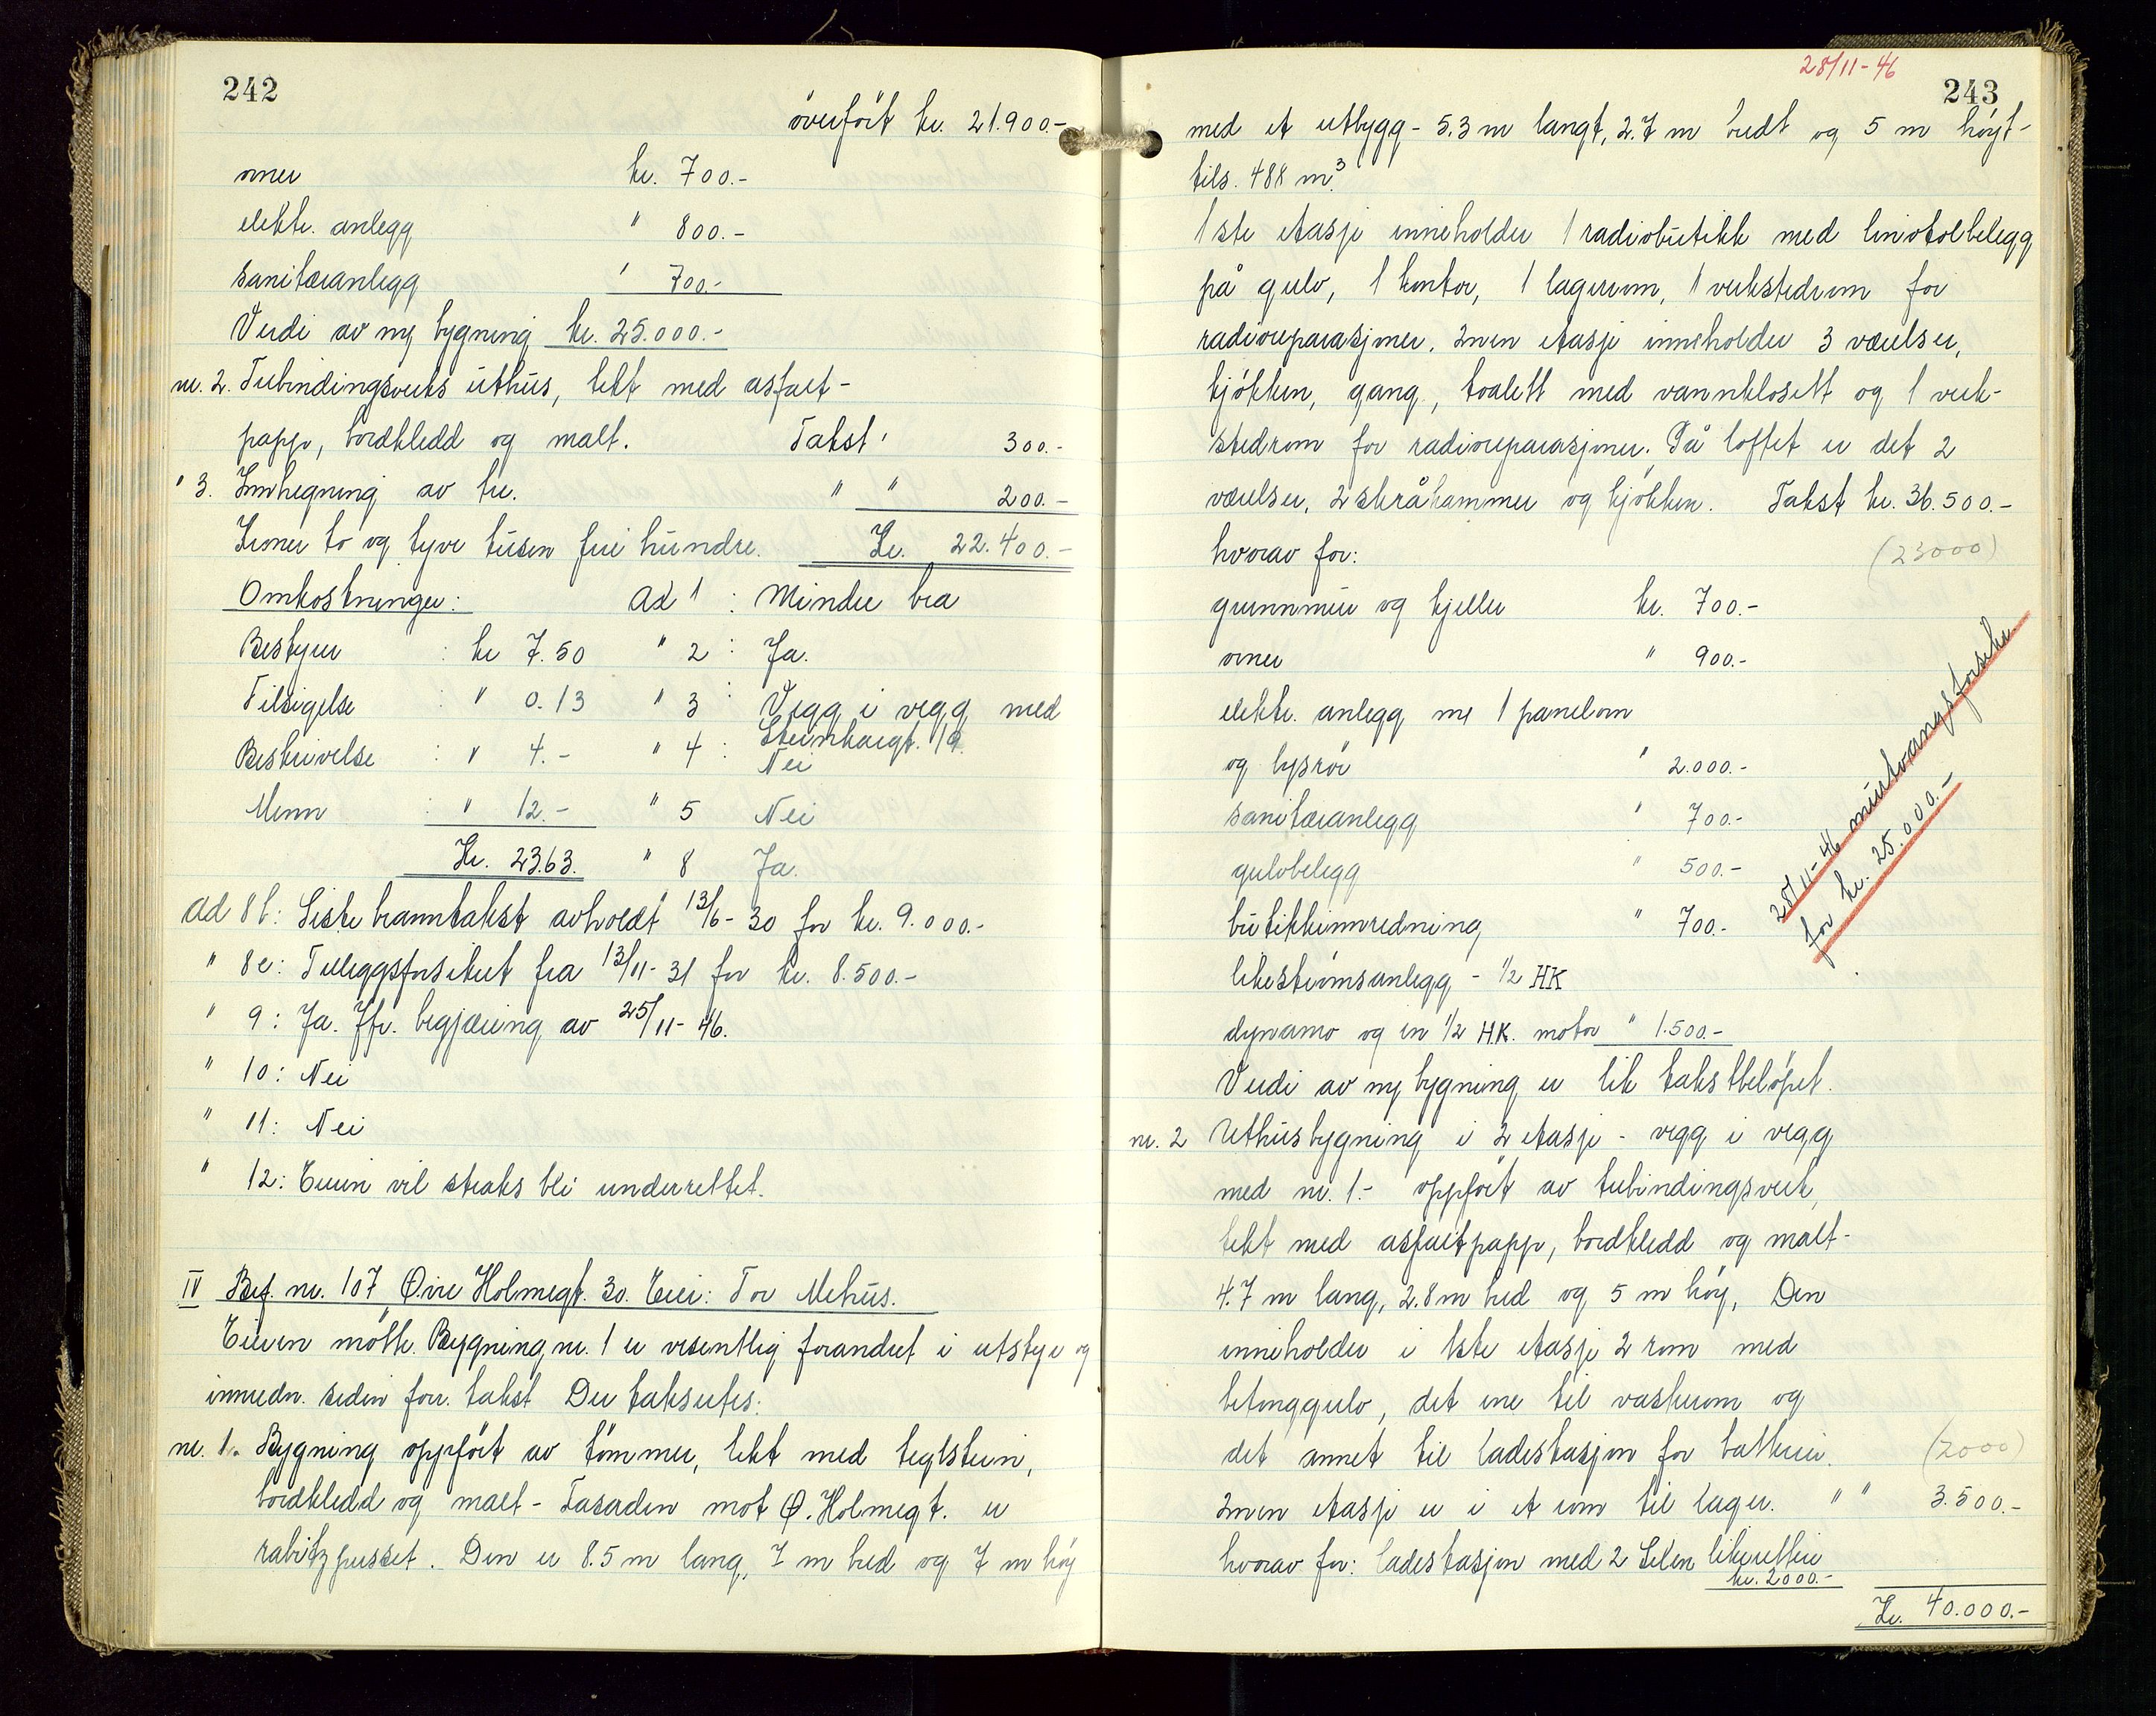 242
överfört kr. 21.900.-
ovner kr. 700.-
elektr. anlegg " 800.-
sanitæranlegg " 700.-
Verdi av ny bygning kr. 25.000.-
nr. 2. Trebindingsverks uthus, tekt med asfalt-
papp, bordkledd og malt. Takst " 300.-
" 3. Innhegning av tre. " " 200.-
Kroner to og tyve tusen fire hundre. Kr. 22.400.-
Omkostninger: Ad 1 : Mindre bra
Bestyrer : kr 7.50 " 2 : Ja.
Tilsigelse : " 0.13 " 3 : Vegg i vegg med
Steinkargt. 19
Beskrivelse : " 4.- " 4 : Nei
Menn : " 12.- " 5 Nei
Kr. 23.63. " 8 Ja.
Ad 8 b: Siste branntakst avholdt 13/6-30 for kr. 9.000.-
" 8 e: Tilleggsforsikret fra 13/11-31 for kr. 8.500.-
" 9: Ja. Jfr. begjæring av 25/11-46.
" 10: Nei
" 11: Nei
" 12: Eieren vil straks bli underrettet.
IV Bef. nr. 107 Øvre Holmegt. 30. Eier: Tor Mehus.
Eieren mötte. Bygning nr. 1 er vesentlig forandret i utstyr og
innredn. siden forr. takst Der takseres:
nr. 1. Bygning oppfört av tömmer, tekt med teglstein,
bordkledd og malt - Fasaden mot Ø. Holmegt. er
rabitzpusset. Den er 8.5 m lang, 7 m bred og 7 m höy
28/11-46
243
med et utbygg - 5.3 m langt, 2.7 m bredt og 5 m höyt-
tils. 488 m³.
1ste etasje inneholder 1 radiobutikk med linotolbelegg
på gulv, 1 kontor, 1 lagerrom, 1 verkstedrom for
radioreparasjoner. 2nen etasje inneholder 3 værelser,
kjökken, gang, toalett med vannklosett og 1 verk-
stedrom for radioreparasjoner. På loftet er det 2
værelser, 2 skråkammer og kjökken. Takst kr. 36.500.-
hvorav for: (23000)
grunnmur og kjeller kr. 700.-
ovner " 900.-
elektr. anlegg m/ 1 panelovn
og lysrör " 2.000.-
sanitæranlegg " 700.-
gulvbelegg " 500.-
butikkinnredning " 700.-
likeströmsanlegg - 1/2 HK
dynamo og en 1/2 H.K. motor " 1.500.-
28/11-46 murtvangsforsikr.
for kr. 25.000.-
Verdi av ny bygning er lik takstbelöpet.
nr. 2 Uthusbygning i 2 etasje - vegg i vegg
med nr. 1.- oppfört av trebindingsverk,
tekt med asfaltpapp, bordkledd og malt-
4.7 m lang, 2.8 m bred og 5 m höy, Den
inneholder i 1ste etasje 2 rom med
betonggulv, det ene til vaskerom og
det annet til ladestasjon for batterier. (2000)
2nen etasje er i et rom til lager. " " 3.500.-
hvorav for: ladestasjon med 2 Selen likerettere
kr. 2000.-
Kr. 40.000.-